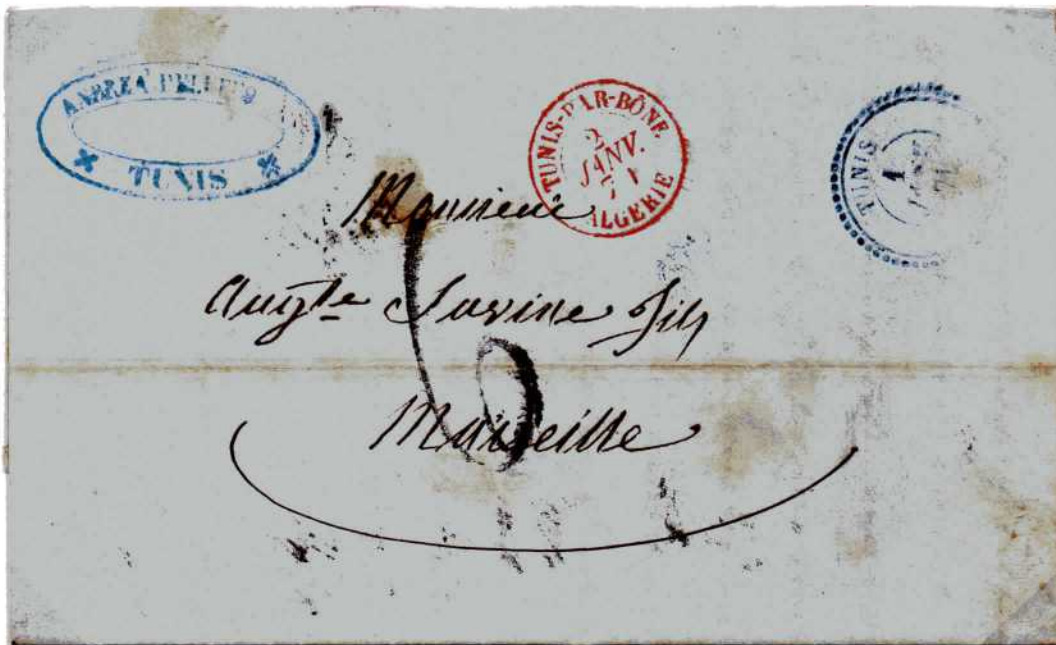 ANDREA
TUNIS
TUNIS-PAR-BÔNE
2
JANV.
71
ALGERIE
TUNIS
1
71
Monsieur
Augte Savine fils
6
Marseille